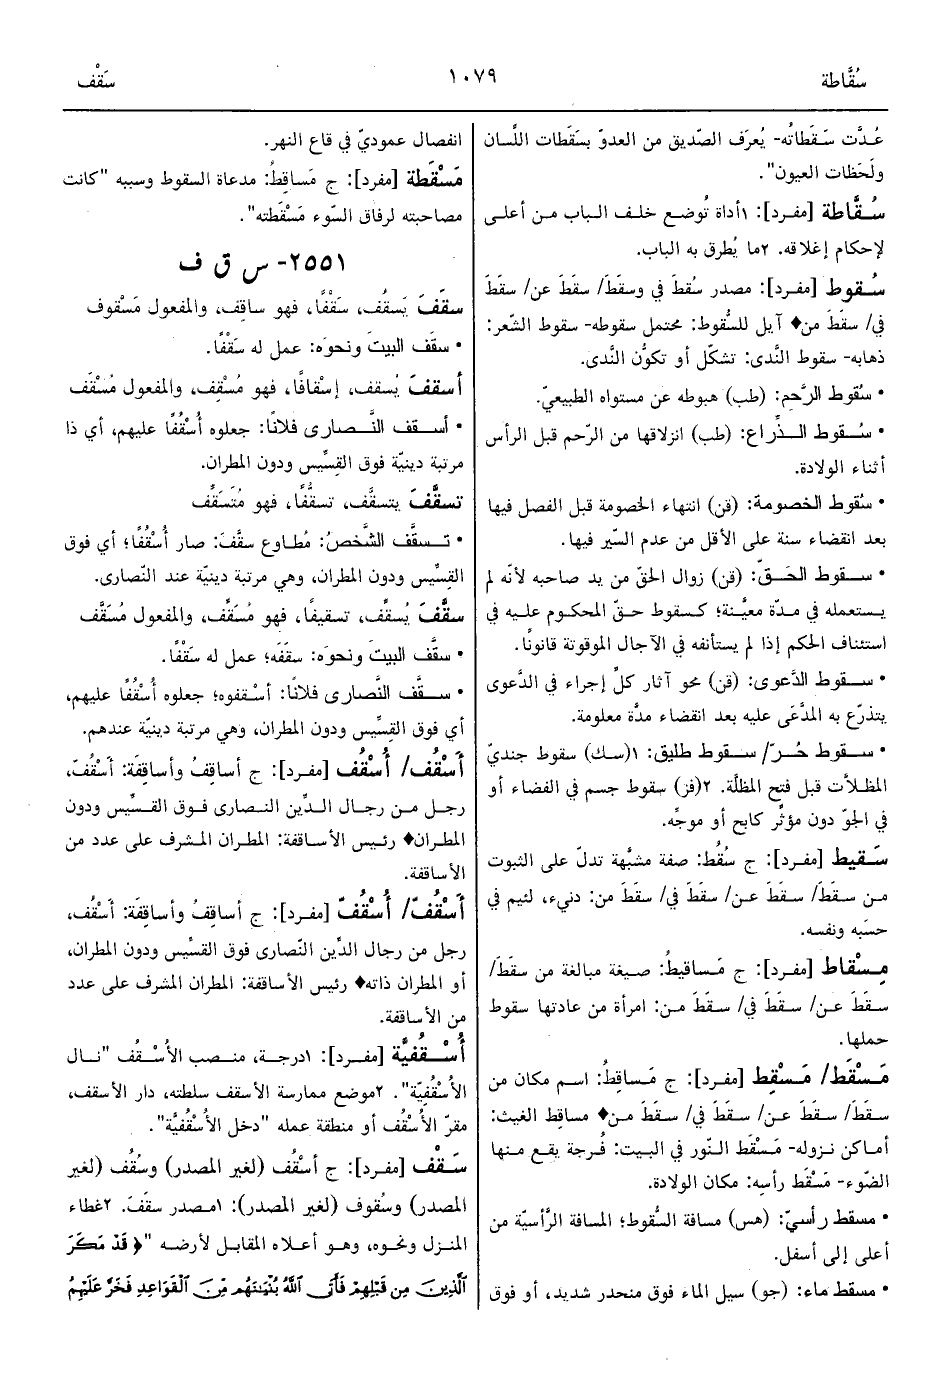 سُقَّاطة
١٠٧٩
سَقْف
عُدَّت سَقَطاتُه- يُعرَف الصّديق من العدوّ بسَقَطات اللَّسان
ولَحَظات العيون".
سُقَّاطة [مفرد]: ١أداة تُوضع خلف الباب من أعلى
لإحكام إغلاقه. ٢ما يُطرق به الباب.
سُقوط [مفرد]: مصدر سُقطَ في وسقَطَ/ سقَطَ عن/ سقَطَ
في/ سقَطَ من♦ آيل للسُّقوط: محتمل سقوطه- سقوط الشّعر:
ذهابه- سقوط النَّدى: تشكّل أو تكوُّن النَّدى.
• سُقوط الرَّحِم: (طب) هبوطه عن مستواه الطبيعيّ.
• سُقوط الذِّراع: (طب) انزلاقها من الرّحم قبل الرأس
أثناء الولادة.
• سُقوط الخصومة: (قن) انتهاء الخصومة قبل الفصل فيها
بعد انقضاء سنة على الأقل من عدم السّير فيها.
• سقوط الحَقّ: (قن) زوال الحقّ من يد صاحبه لأنّه لم
يستعمله في مدّة معيَّنة؛ كسقوط حقّ المحكوم عليه في
استئناف الحكم إذا لم يستأنفه في الآجال الموقوتة قانونًا.
• سقوط الدَّعوى: (قن) محو آثار كلِّ إجراء في الدَّعوى
يتذرّع به المدَّعَى عليه بعد انقضاء مدَّة معلومة.
• سقوط حُرّ/ سقوط طليق: ١(سك) سقوط جنديّ
المظلاَّت قبل فتح المظلَّة. ٢(فز) سقوط جسم في الفضاء أو
في الجوّ دون مؤثِّر كابح أو موجِّه.
سَقيط [مفرد]: ج سُقُط: صفة مشبَّهة تدلّ على الثبوت
من سقَطَ/ سقَطَ عن/ سقَطَ في/ سقَطَ من: دنيء، لئيم في
حسَبه ونفسه.
مِسْقاط [مفرد]: ج مَساقيطُ: صيغة مبالغة من سقَطَ/
سقَطَ عن/ سقَطَ في/ سقَطَ من: امرأة من عادتها سقوط
حملها.
مَسْقَط/ مَسْقِط [مفرد]: ج مَساقِطُ: اسم مكان من
سقَطَ/ سقَطَ عن/ سقَطَ في/ سقَطَ من♦ مساقِط الغيث:
أماكن نزوله- مَسْقَط النّور في البيت: فُرجة يقع منها
الضّوء- مَسْقَط رأسِه: مكان الولادة.
• مسقط رأسيّ: (هس) مسافة السُّقوط؛ المسافة الرَّأسيّة من
أعلى إلى أسفل.
• مسقط ماء: (جو) سيل الماء فوق منحدر شديد، أو فوق
انفصال عموديّ في قاع النهر.
مَسْقَطة [مفرد]: ج مَساقِطُ: مدعاة السقوط وسببه "كانت
مصاحبته لرفاق السّوء مَسْقَطته".
٢٥٥١- س ق ف
سقَفَ يَسقُف، سَقْفًا، فهو ساقِف، والمفعول مَسْقوف
• سقَف البيتَ ونحوَه: عمل له سَقْفًا.
أسقفَ يُسقف، إسْقافًا، فهو مُسْقِف، والمفعول مُسْقَف
• أسقف النَّصارى فلانًا: جعلوه أُسْقُفًا عليهم، أي ذا
مرتبة دينيّة فوق القِسِّيس ودون المطران.
تسقَّفَ يتسقَّف، تسقُّفًا، فهو مُتَسَقِّف
• تسقَّف الشَّخصُ: مُطاوع سقَّفَ: صار أُسْقُفًا؛ أي فوق
القِسِّيس ودون المطران، وهي مرتبة دينيّة عند النّصارى.
سقَّفَ يُسقِّف، تسقيفًا، فهو مُسَقِّف، والمفعول مُسَقَّف
• سقَّف البيتَ ونحوَه: سقَفَه؛ عمل له سَقْفًا.
• سقَّف النَّصارى فلانًا: أسْقفوه؛ جعلوه أُسْقُفًا عليهم،
أي فوق القِسِّيس ودون المطران، وهي مرتبة دينيّة عندهم.
أَسْقُف/ أُسْقُف [مفرد]: ج أساقِفُ وأساقِفَة: أُسْقُفّ،
رجل من رجال الدِّين النصارى فوق القسِّيس ودون
المطران♦ رئيس الأساقفة: المطران المشرف على عدد من
الأساقفة.
أَسْقُفّ/ أُسْقُفّ [مفرد]: ج أساقِفُ وأساقِفَة: أسْقُف،
رجل من رجال الدِّين النّصارى فوق القسِّيس ودون المطران،
أو المطران ذاته♦ رئيس الأساقفة: المطران المشرف على عدد
من الأساقفة.
أُسْقُفيَّة [مفرد]: ١درجة، منصب الأُسْقُف "نال
الأُسْقُفيّة". ٢موضع ممارسة الأسقف سلطته، دار الأسقف،
مقرّ الأُسْقُف أو منطقة عمله "دخل الأُسْقُفيَّة".
سَقْف [مفرد]: ج أسْقُف (لغير المصدر) وسُقُف (لغير
المصدر) وسُقوف (لغير المصدر): ١مصدر سقَفَ. ٢غطاء
المنزل ونحوه، وهو أعلاه المقابل لأرضه "﴿قَدْ مَكَرَ
الَّذِينَ مِن قَبْلِهِمْ فَأَتَى اللَّهُ بُنْيَانَهُم مِّنَ الْقَوَاعِدِ فَخَرَّ عَلَيْهِمُ